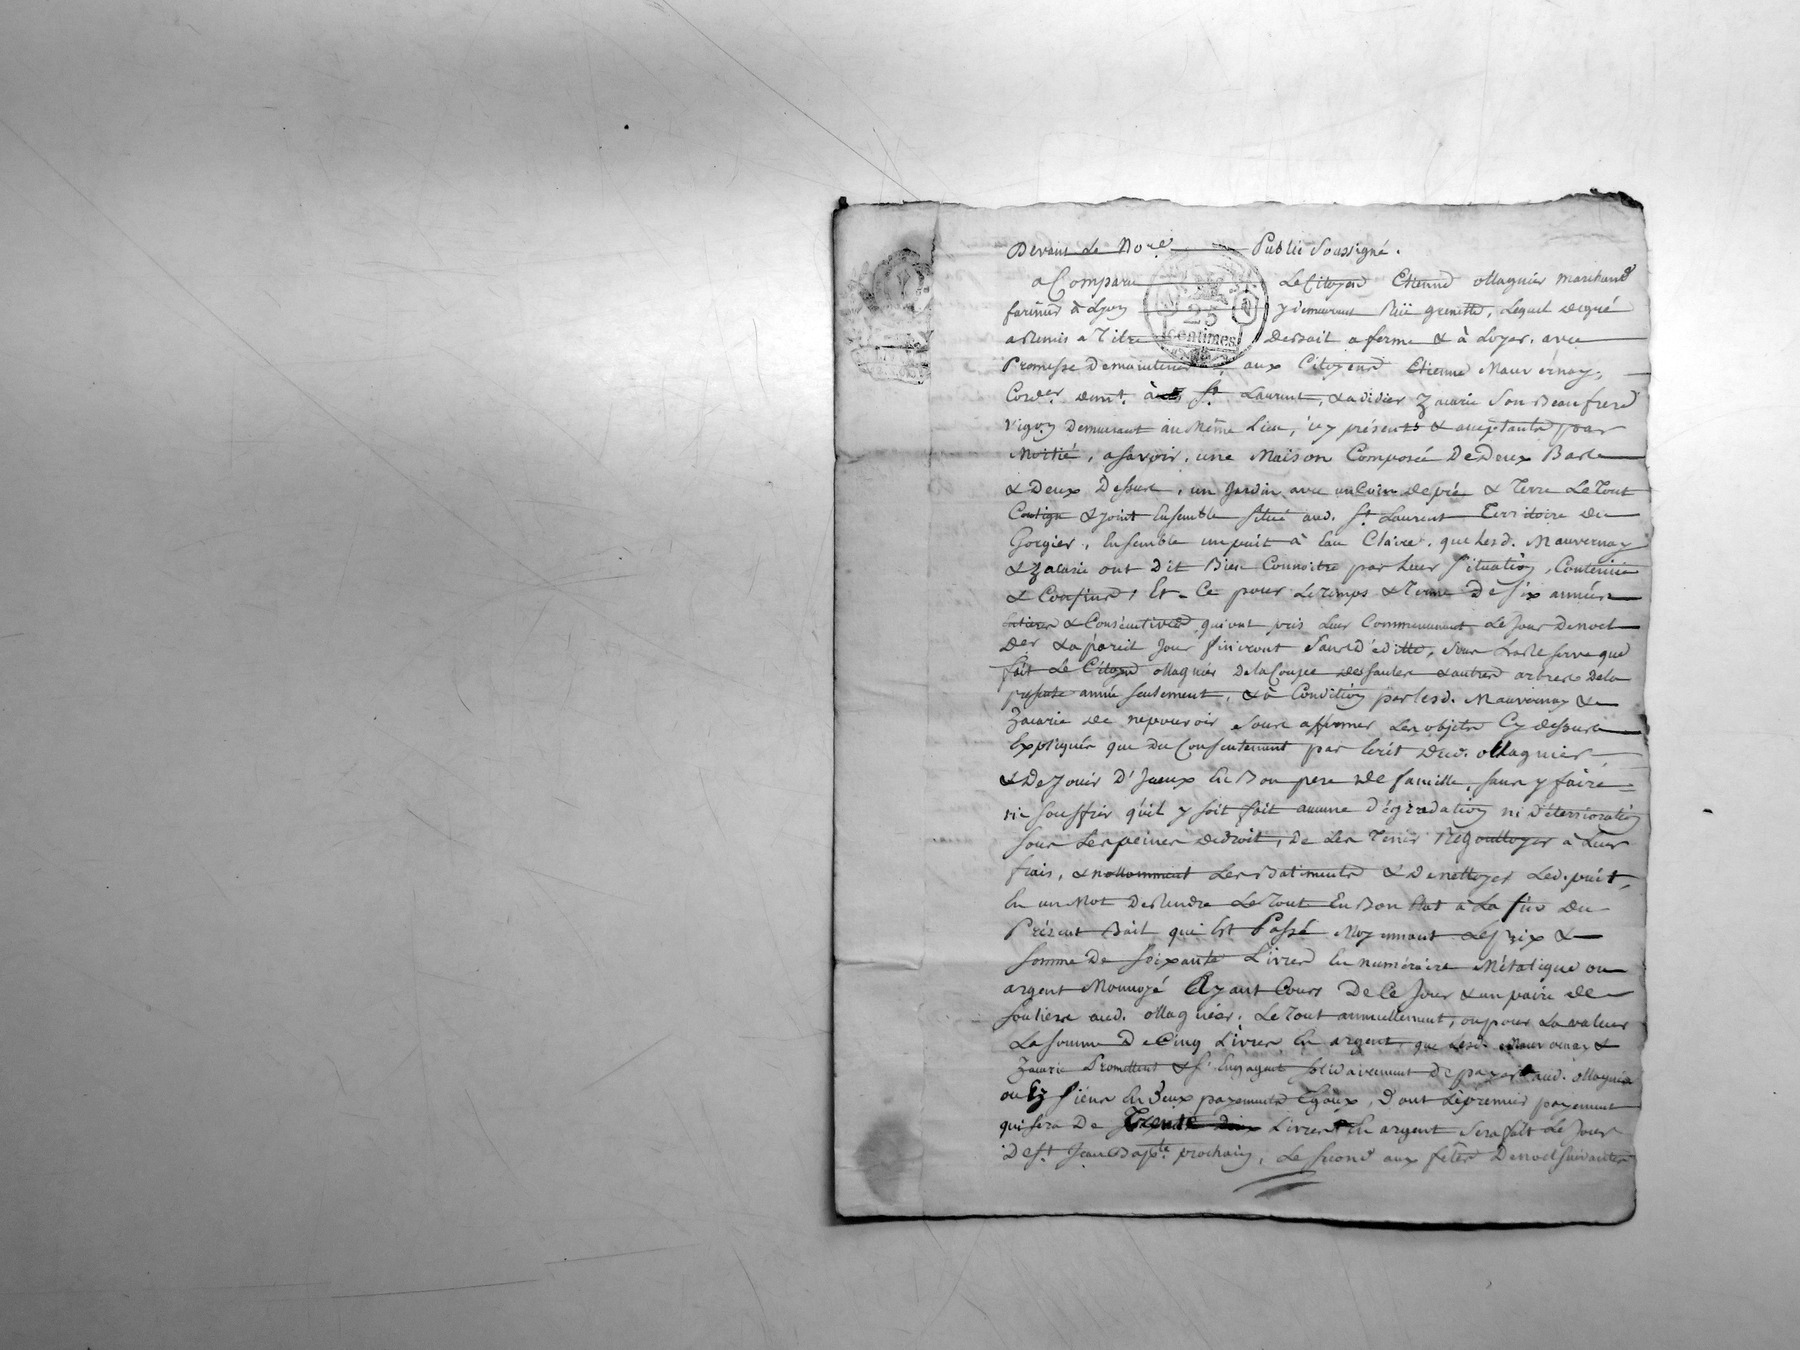 Devant Le No.re Public Soussigné.
a Comparu Le Citoyen Etienne ollagnier Marchand
farinier à Lyon y demeurant Rüe grenette, Lequel de gré
a Remis a Titre de Bail a ferme & à Loyer, avec
25
centimes
Promesse De maintenir aux Citoyens Etienne Mauvernay,
Cord.er demt. à St. Laurent, & a didier Zacarie Son Beau frere
Vig.on Demeurant au Même Lieu, icy présents & acceptants par
Moitié, a Savoir, une Maison Composée De Deux Bas
& Deux Dessus, un Jardin avec un Coin de pré & Terre Le Tout
Contigu & joint Ensemble Situé aud. St. Laurent Territoire du
Gorgier, Ensemble un puit à Eau Claire, que Lesd. Mauvernay
& Zacarie ont Dit Bien Connoitre par Leur Situation, Contenüe
& Confins, Et Ce pour Le Temps & Terme De Six années
Entieres & Consécutives, qui ont pris Leur Commencement Le Jour De noel
Der & a pareil Jour finiront Sans Déditte, Sous La Réserve que
fait Le Citoyen ollagnier De la Coupe des Saules & autres arbres De la
présente année Seulement, & à Condition par Lesd. Mauvernay &
Zacarie de ne pouvoir Sous affermer Les objets Cy dessus
Expliqués que Du Consentement par Ecrit Dud. ollagnier
& De Jouir D'Iceux En Bon pere De famille, Sans y faire
ni Souffrir qu'il y Soit fait aucune Dégradation ni Détérioration
Sous Les peines de droit, De Les Tenir Régoutoyer à Leurs
frais, & notamment Les Batiments & De nettoyer Led. puit,
En un Mot De Rendre Le Tout En Bon Etat à La fin Du
Présent Bail qui Est Passé Moyennant Le prix &
Somme De Soixante Livres En numéraire Métalique ou
argent Monnoyé Ayant Cours De Ce Jour & un paire de
Souliers aud. ollagnier, Le Tout annuellement, ou pour La valeur
La Somme De Cinq Livres En argent, que Lesd. Mauvernay &
Zacarie Promettent & S'Engagent Solidairement De payer aud. ollagnier
ou Ez Siens En Deux payements Egaux, Dont Le premier payement
qui Sera De Trente deux Livres En argent Sera fait Le Jour
De St. Jean Bap.te prochain, Le Second aux fêtes De noel Suivantes